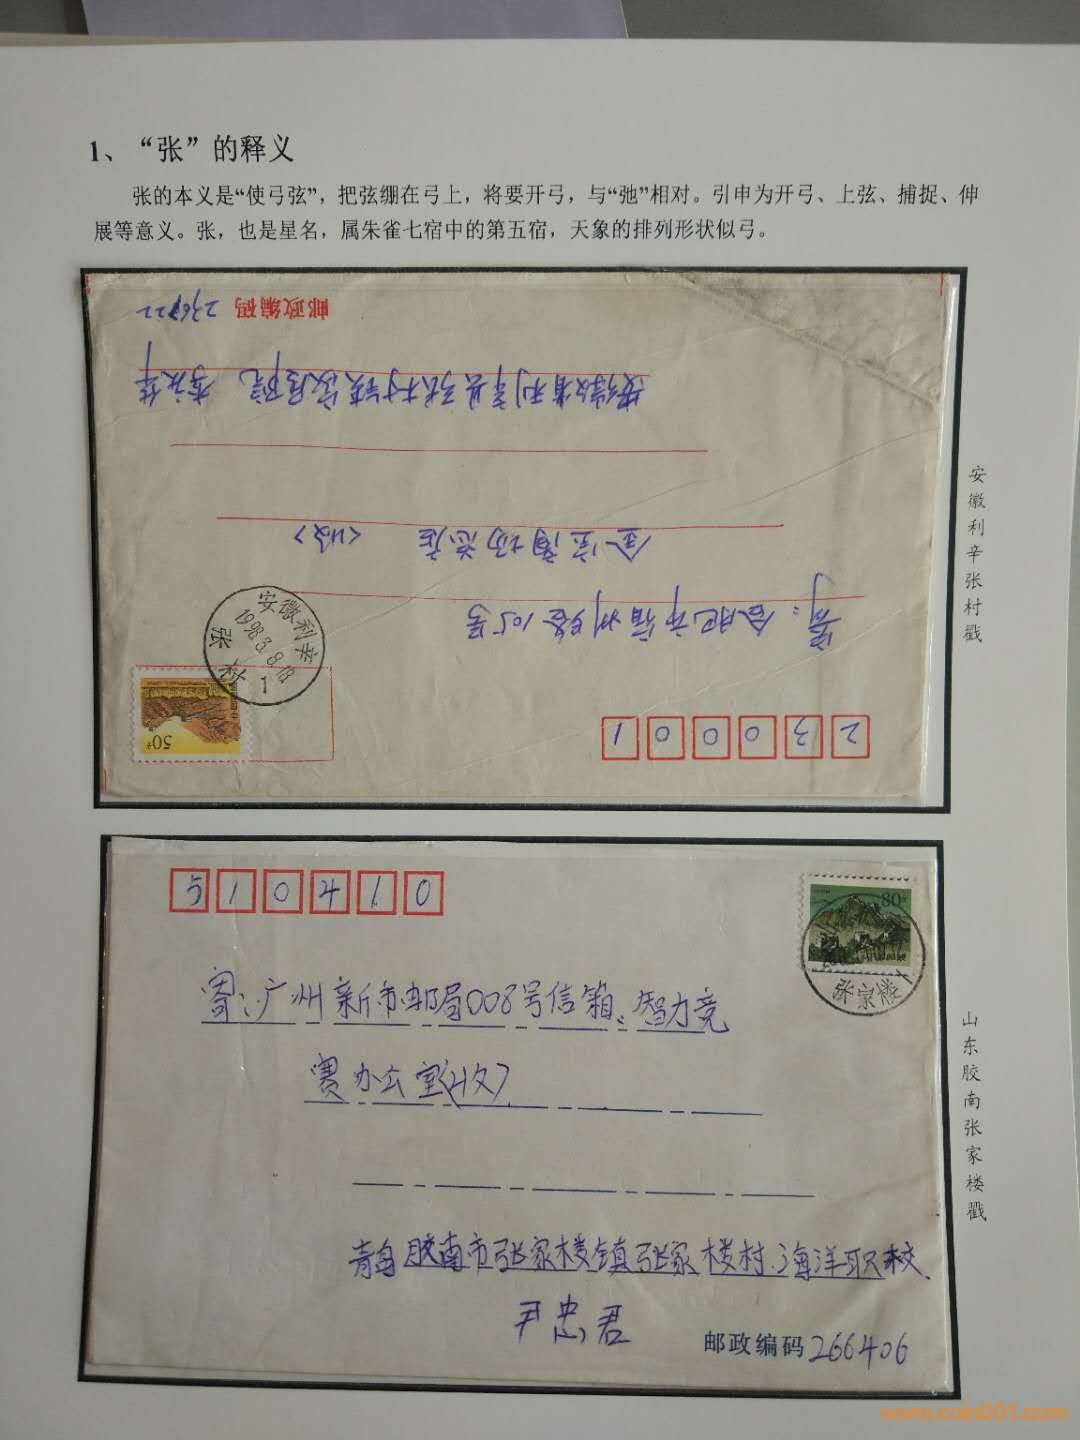 1、“张”的释义
张的本义是“使弓弦”，把弦绷在弓上，将要开弓，与“弛”相对。引申为开弓、上弦、捕捉、伸
展等意义。张，也是星名，属朱雀七宿中的第五宿，天象的排列形状似弓。
230001
寄：合肥市宿州路105号
金宝商场总店 〈收〉
安徽省利辛县张村镇政府院
邮政编码 236722
安徽利辛
1998.3.8.18
张村 1
50分
安徽利辛张村戳
510410
80分
张家楼
寄：广州新市邮局008号信箱、智力竞
赛办公室(收)
青岛胶南市张家楼镇张家楼村海洋职校
尹忠君
邮政编码266406
山东胶南张家楼戳
www.coin001.com